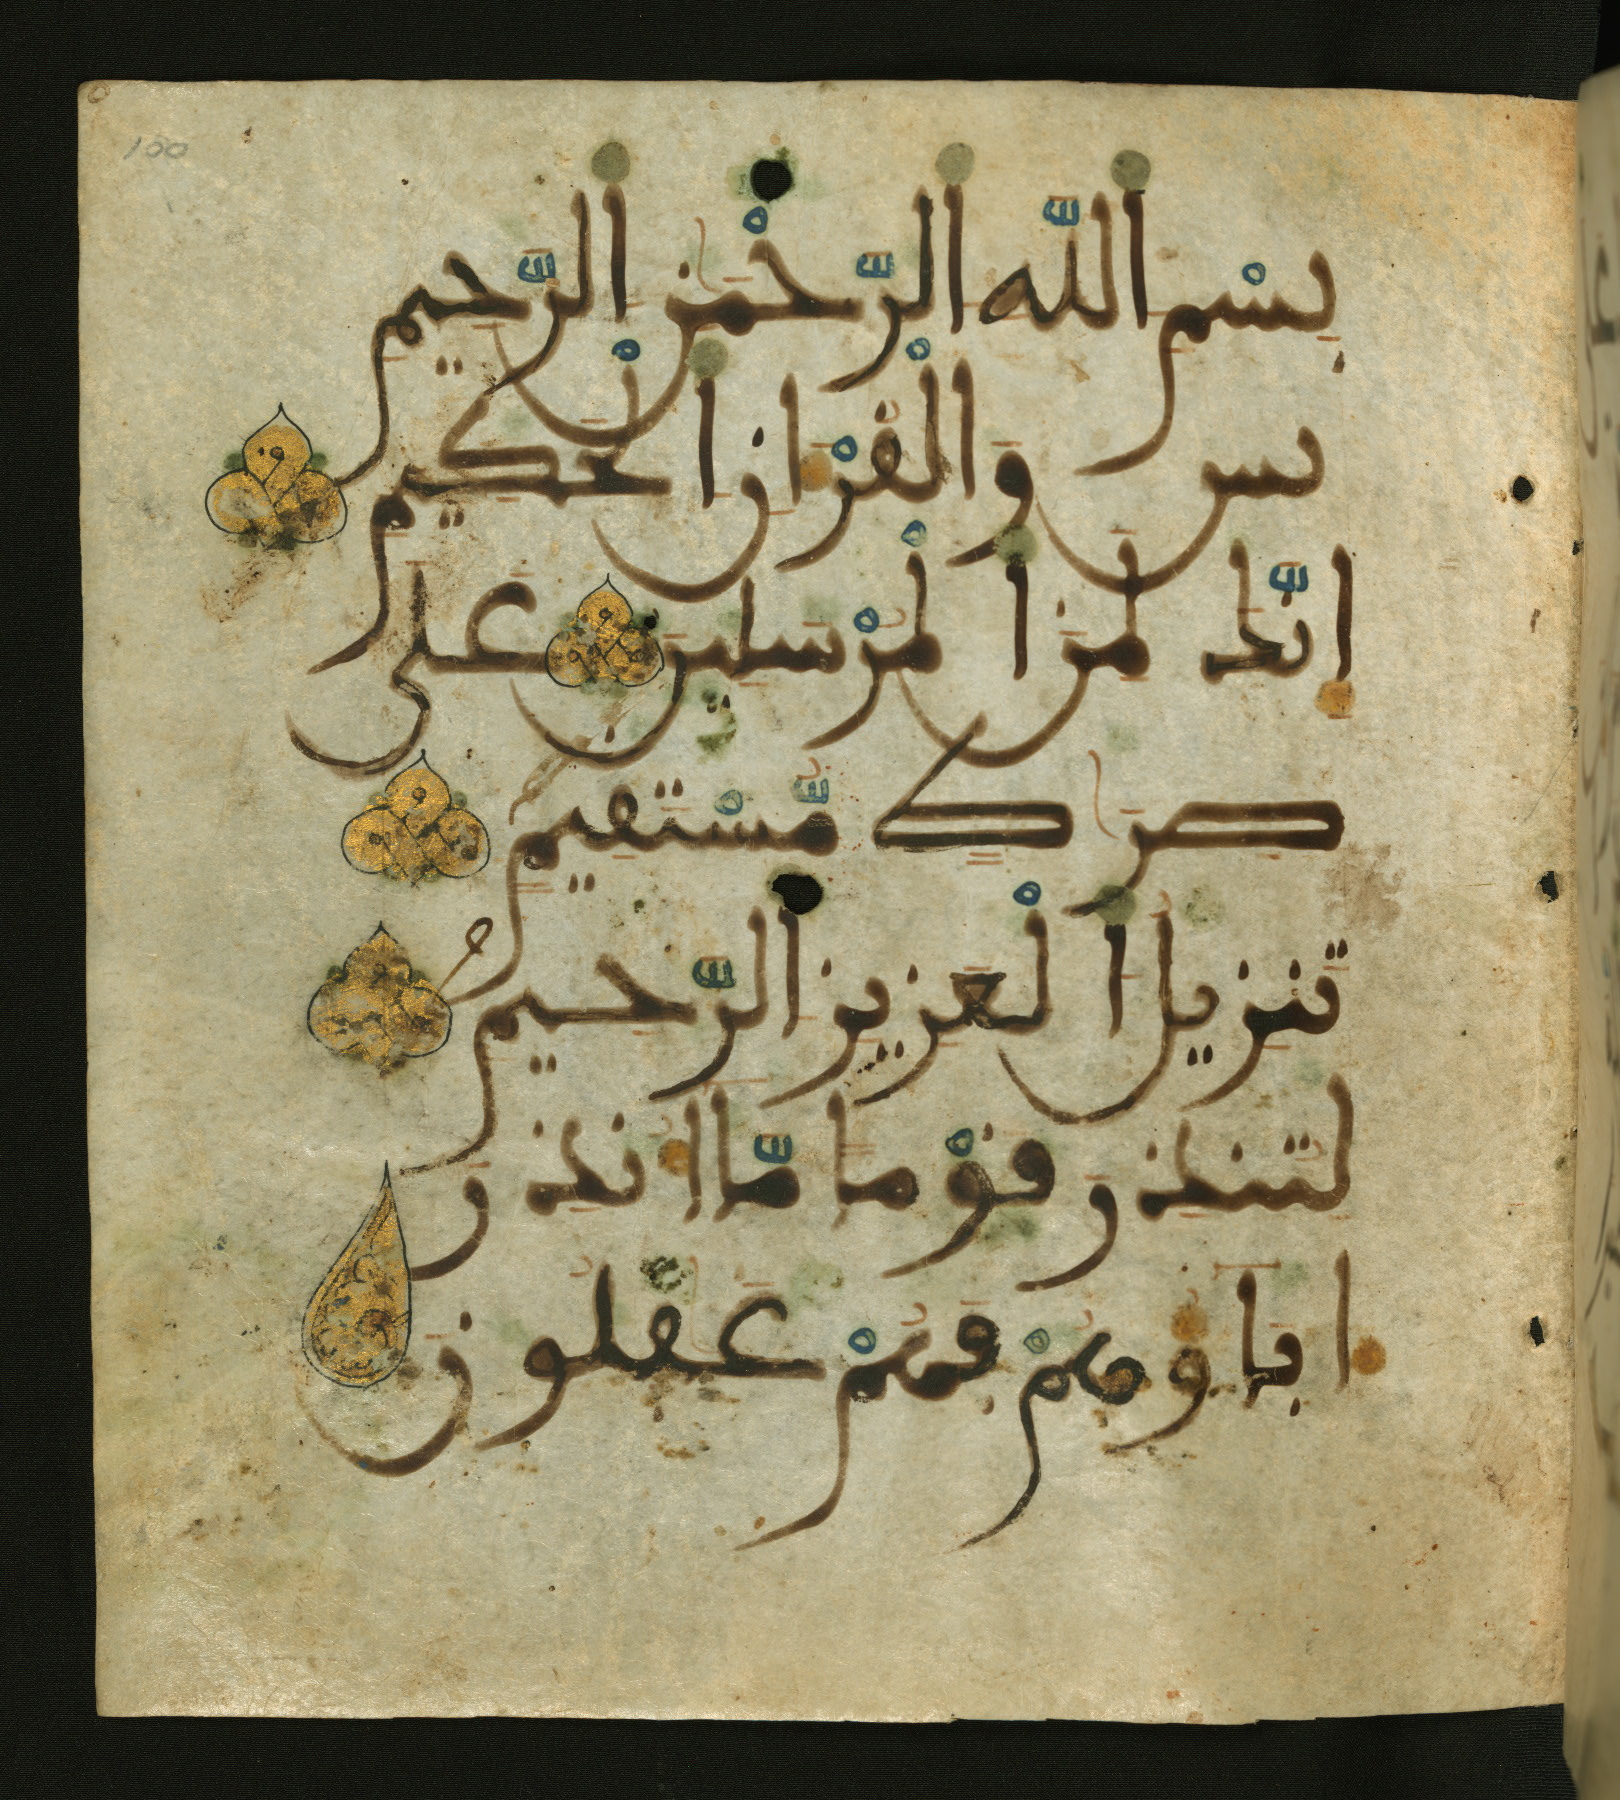 100
بسم الله الرحمن الرحيم
يس والقران الحكيم
انك لمن المرسلين على
صرط مستقيم
تنزيل العزيز الرحيم
لتنذر قوما ما انذر
اباوهم فهم غفلون